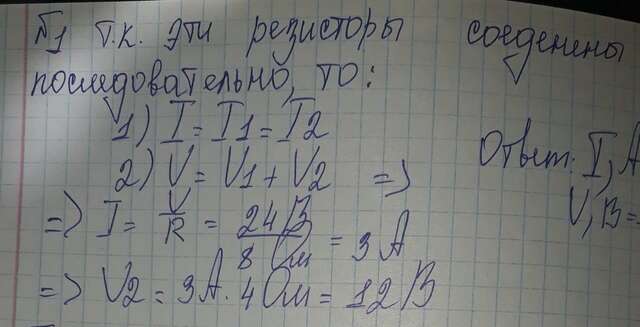 №1 Т.к. эти резисторы соеденены
последовательно, то:
1) I = I1 = I2
2) V = V1 + V2 =>
=> I = V/R = 24В/8 Ом = 3 А
=> V2 = 3А · 4 Ом = 12 В
Ответ: I, А
V, В =